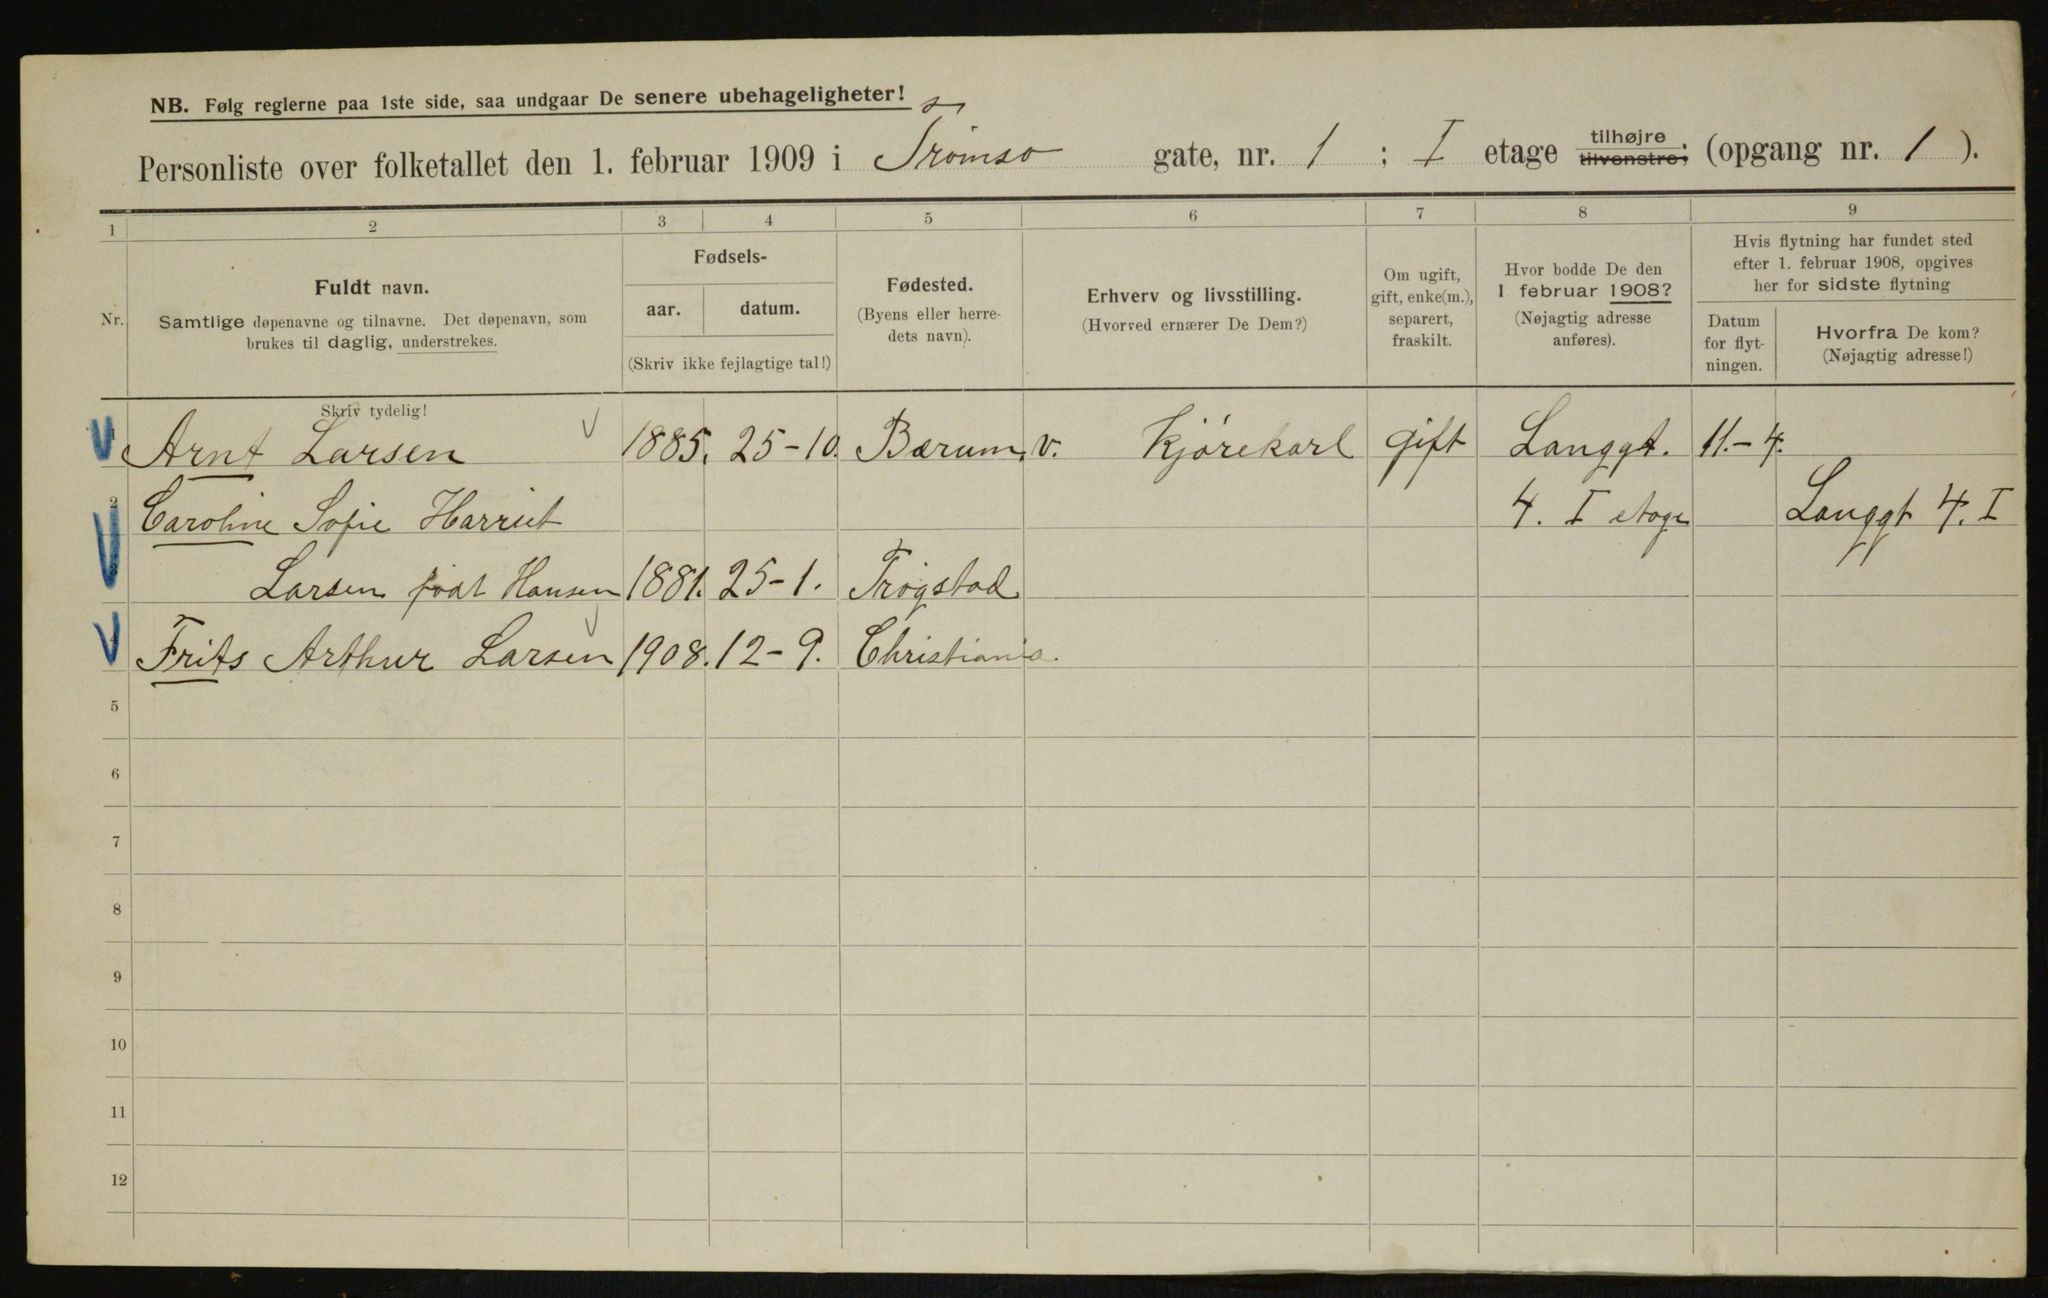 NB. Følg reglerne paa 1ste side, saa undgaar De senere ubehageligheter!
Personliste over folketallet den 1. februar 1909 i Tromsø gate, nr. 1 ; I etage tilhøjre tilvenstre; (opgang nr. 1 ).
1 2 3 4 5 6 7 8 9
Nr.
Fuldt navn.
Samtlige døpenavne og tilnavne. Det døpenavn, som
brukes til daglig, understrekes.
Skriv tydelig!
Fødsels-
aar. datum.
(Skriv ikke fejlagtige tal!)
Fødested.
(Byens eller herre-
dets navn).
Erhverv og livsstilling.
(Hvorved ernærer De Dem?)
Om ugift,
gift, enke(m.),
separert,
fraskilt.
Hvor bodde De den
1 februar 1908?
(Nøjagtig adresse
anføres).
Hvis flytning har fundet sted
efter 1. februar 1908, opgives
her for sidste flytning
Datum
for flyt-
ningen.
Hvorfra De kom?
(Nøjagtig adresse!)
Arnt Larsen 1885. 25-10. Bærum. v. Kjørekarl gift Langgt. 11.-4.
2 Caroline Sofie Harriet 4. I etage Langgt 4. I
Larsen født Hansen 1881. 25-1. Trøgstad
Frits Arthur Larsen 1908. 12-9. Christiania.
5
6
7
8
9
10
11
12